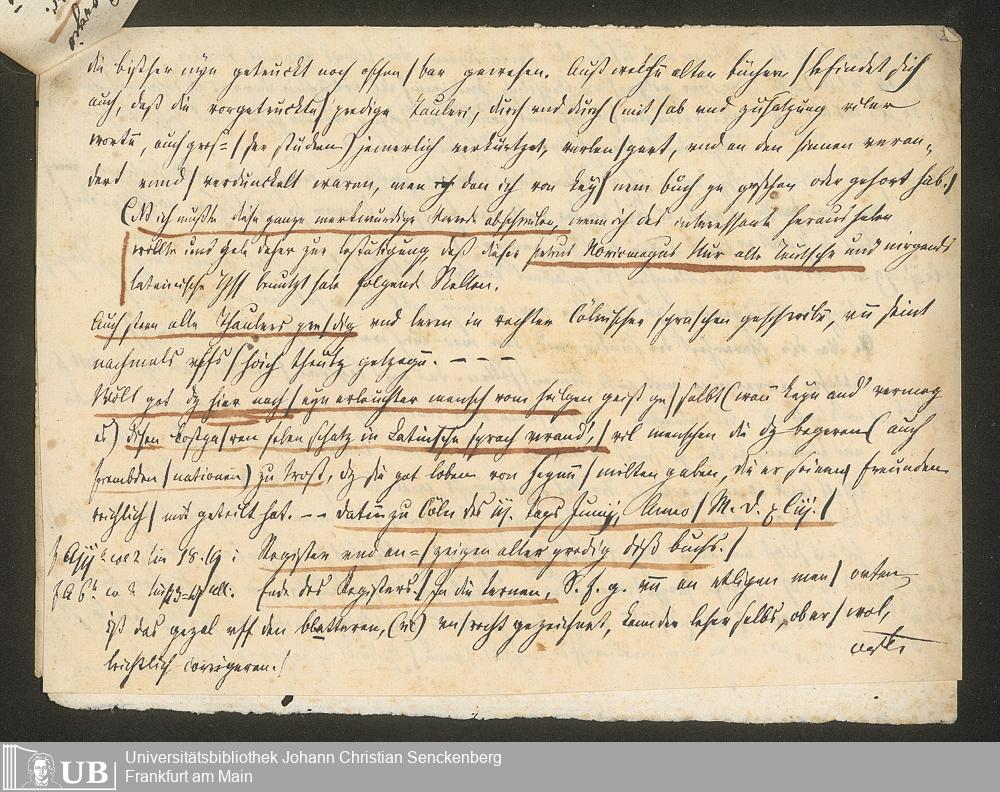 die bißher nyn getruckt noch offen/bar gewesen. Auß welchen alten büchern/befindet sich
auch, daß die vorgetruckte/predige Tauleri, durch und durch (mit/ab und zusatzung viler
worte, auch gros=/ser stucken) jemerlich verkurtzet, verlen/gert, und an den sinnen veran„
dert unnd/verdunckelt waren, wen ich den ich von key/nem buch ye gesehen oder gehort hab./
(NB ich müßte diese ganze merkwürdige Vorrede abschreiben, wenn ich das interessante herausheben
wollte und gebe daher zur bestätigung daß dieser Petrus Noviomagus Nur alte Teutsche und nirgends
lateinische Hss benutzt habe folgende Stellen.
Auch seen alle Thaulers predig und leren in rechter Cölnischer sprachen geschreibe, un seint
nachmals uffs/hoich theutz getzogen. - - - -
Wolt got dz hier nach/eyn erleuchter mensch vom heilgen geist ge/salbt (wan keyn and' vermag
es) disen kostpa/ren seben schatz in Latinische sprach verand',/vil menschen die dz begeren (auch
frembden/nationenn) zu trost, dz sie got loben von seynn/milten gaben, die er seinen freunden
reichlich/mit geteilt hat. - - datum zu Cöln des iij. tags Junij, Anno/M. D. xliij./
col 2 lin 18. 19: Register und an=/zeigen aller predig diß buchs./
Ende des Registers./In die lernen, S. f. g. un an etligen men/orten,
ist das gezal uff den blatteren, (ist) unrecht gezeichnet, kann der leser selbs, ob er/wol,
leichtlich corrigeren./
Universitätsbibliothek Johann Christian Senckenberg
Frankfurt am Main
UB